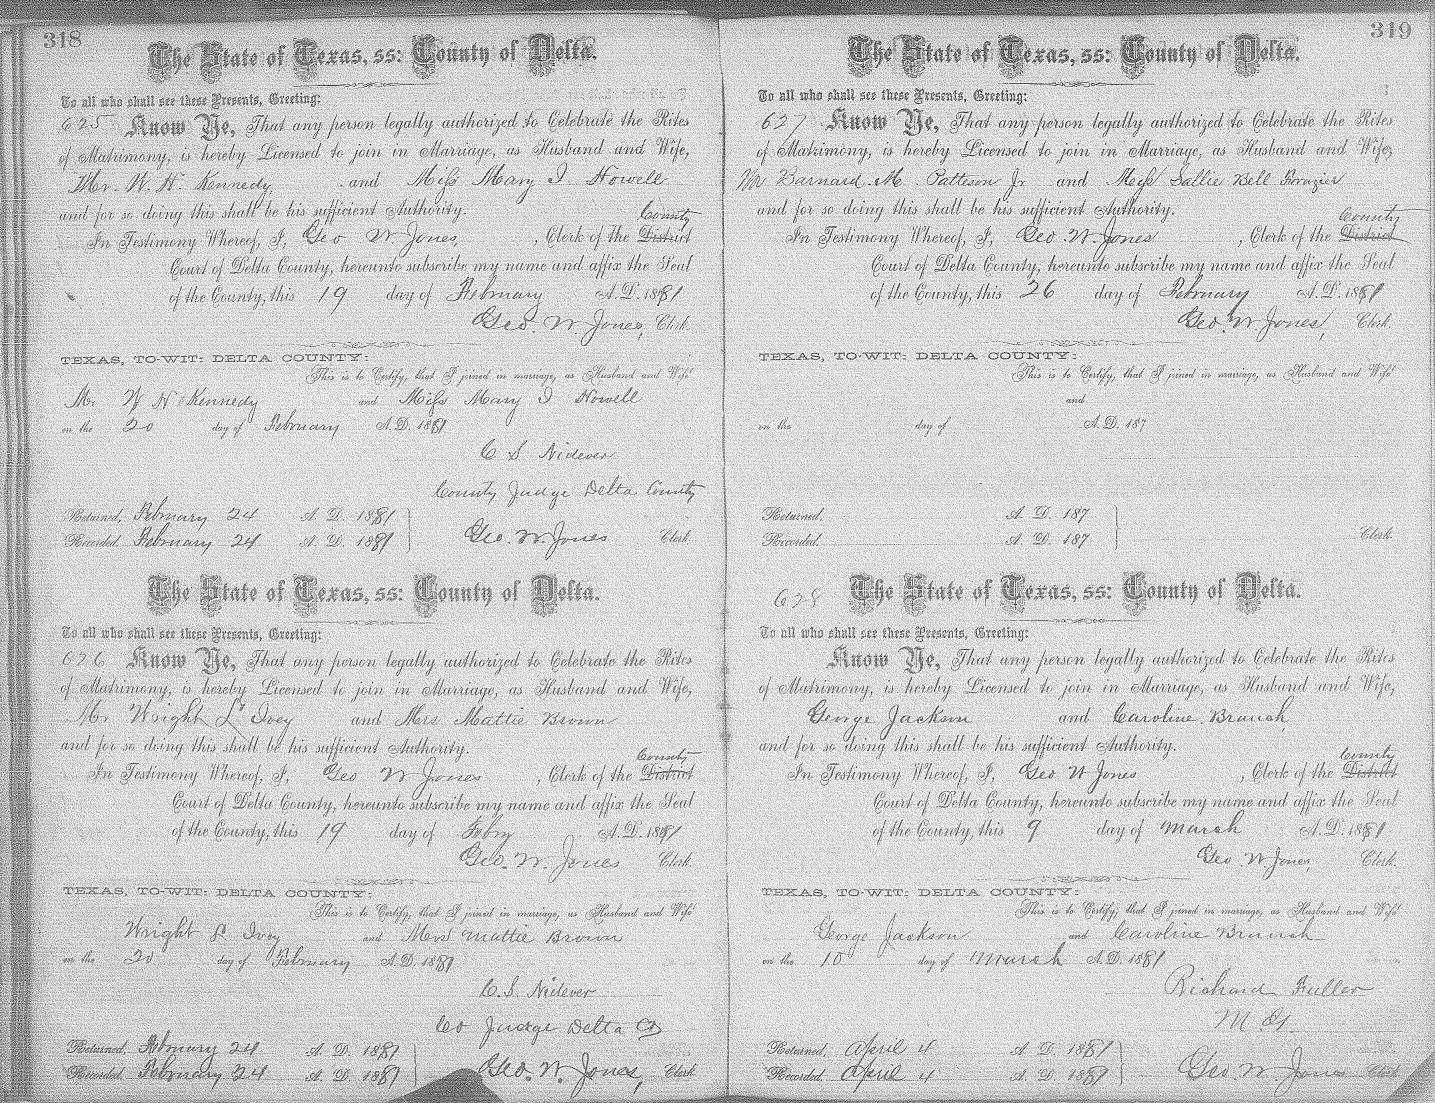 318
The State of Texas, ss: County of Delta.
To all who shall see these Presents, Greeting:
625 Know Ye, That any person legally authorized to Celebrate the Rites
of Matrimony, is hereby Licensed to join in Marriage, as Husband and Wife,
Mr. W. H. Kennedy and Miss Mary I Howell
and for so doing this shall be his sufficient Authority.
County
In Testimony Whereof, I, Geo W Jones, Clerk of the District
Court of Delta County, hereunto subscribe my name and affix the Seal
of the County, this 19 day of February A.D. 1881
Geo. W Jones, Clerk.
TEXAS, TO-WIT: DELTA COUNTY:
This is to Certify, that I joined in marriage, as Husband and Wife
Mr. W H Kennedy and Miss Mary I Howell
on the 20 day of February A.D. 1881
C S Nidever
County Judge Delta County
Returned, February 24 A. D. 1881
Recorded February 24 A. D. 1881 Geo. W. Jones Clerk
The State of Texas, ss: County of Delta.
To all who shall see these Presents, Greeting:
626 Know Ye, That any person legally authorized to Celebrate the Rites
of Matrimony, is hereby Licensed to join in Marriage, as Husband and Wife,
Mr Wright L Ivey and Mrs Mattie Brown
and for so doing this shall be his sufficient Authority.
County
In Testimony Whereof, I, Geo W Jones, Clerk of the District
Court of Delta County, hereunto subscribe my name and affix the Seal
of the County, this 19 day of Febry A.D. 1881
Geo. W. Jones Clerk.
TEXAS, TO-WIT: DELTA COUNTY:
This is to Certify, that I joined in marriage, as Husband and Wife
Wright L Ivey and Mrs Mattie Brown
on the 20 day of February A.D. 1881
C. S. Nidever
Co Judge Delta Co
Returned, February 24 A. D. 1881
Recorded, February 24 A. D. 1881 Geo. W. Jones, Clerk
319
The State of Texas, ss: County of Delta.
To all who shall see these Presents, Greeting:
627 Know Ye, That any person legally authorized to Celebrate the Rites
of Matrimony, is hereby Licensed to join in Marriage, as Husband and Wife,
Mr Barnard M. Patteson Jr and Miss Sallie Bell Frazier
and for so doing this shall be his sufficient Authority.
County
In Testimony Whereof, I, Geo. W. Jones, Clerk of the District
Court of Delta County, hereunto subscribe my name and affix the Seal
of the County, this 26 day of February A.D. 1881
Geo. W. Jones, Clerk.
TEXAS, TO-WIT: DELTA COUNTY:
This is to Certify, that I joined in marriage, as Husband and Wife
and
on the day of A.D. 187
Returned, A. D. 187
Recorded, A. D. 187 Clerk.
628 The State of Texas, ss: County of Delta.
To all who shall see these Presents, Greeting:
Know Ye, That any person legally authorized to Celebrate the Rites
of Matrimony, is hereby Licensed to join in Marriage, as Husband and Wife,
George Jackson and Caroline Branch
and for so doing this shall be his sufficient Authority.
County
In Testimony Whereof, I, Geo W Jones, Clerk of the District
Court of Delta County, hereunto subscribe my name and affix the Seal
of the County, this 9 day of March A.D. 1881
Geo. W Jones, Clerk.
TEXAS, TO-WIT: DELTA COUNTY:
This is to Certify, that I joined in marriage, as Husband and Wife
George Jackson and Caroline Branch
on the 10 day of March A.D. 1881
Richard Fuller
M G.
Returned, April 4 A. D. 1881
Recorded, April 4 A. D. 1881 Geo. W. Jones Clerk